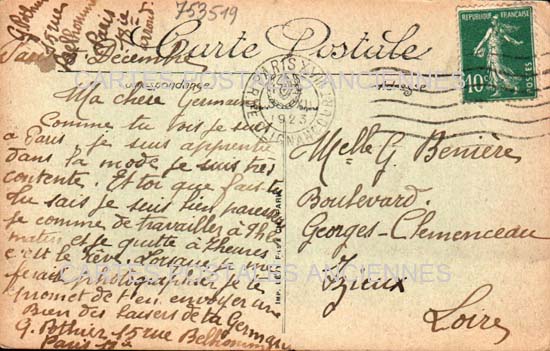 G. Bothier
15 rue
Belhomme
Paris
18ie
753519
Carte Postale
CARTES POSTALES ANCIENNES
Correspondance
REPUBLIQUE FRANÇAISE
10c
POSTES
PARIS XVIII
1923
Paris Décembre
Ma chère Germaine
Comme tu vois je suis
à Paris je suis apprentie
dans la mode je suis très
contente. Et toi que fais tu
tu sais je suis bien
je comme de travailler à 9h
matin et je quitte à 7 heures
c'est le rêve. Lorsque
ferais photographier je te
promet de t'en envoyer une
Bien des baisers de ta Germaine
G. Bothier 15 rue Belhomme
Paris 18ie
Melle G. Benière
Boulevard.
Georges-Clemenceau
Izieux
Loire
CARTES POSTALES ANCIENNES